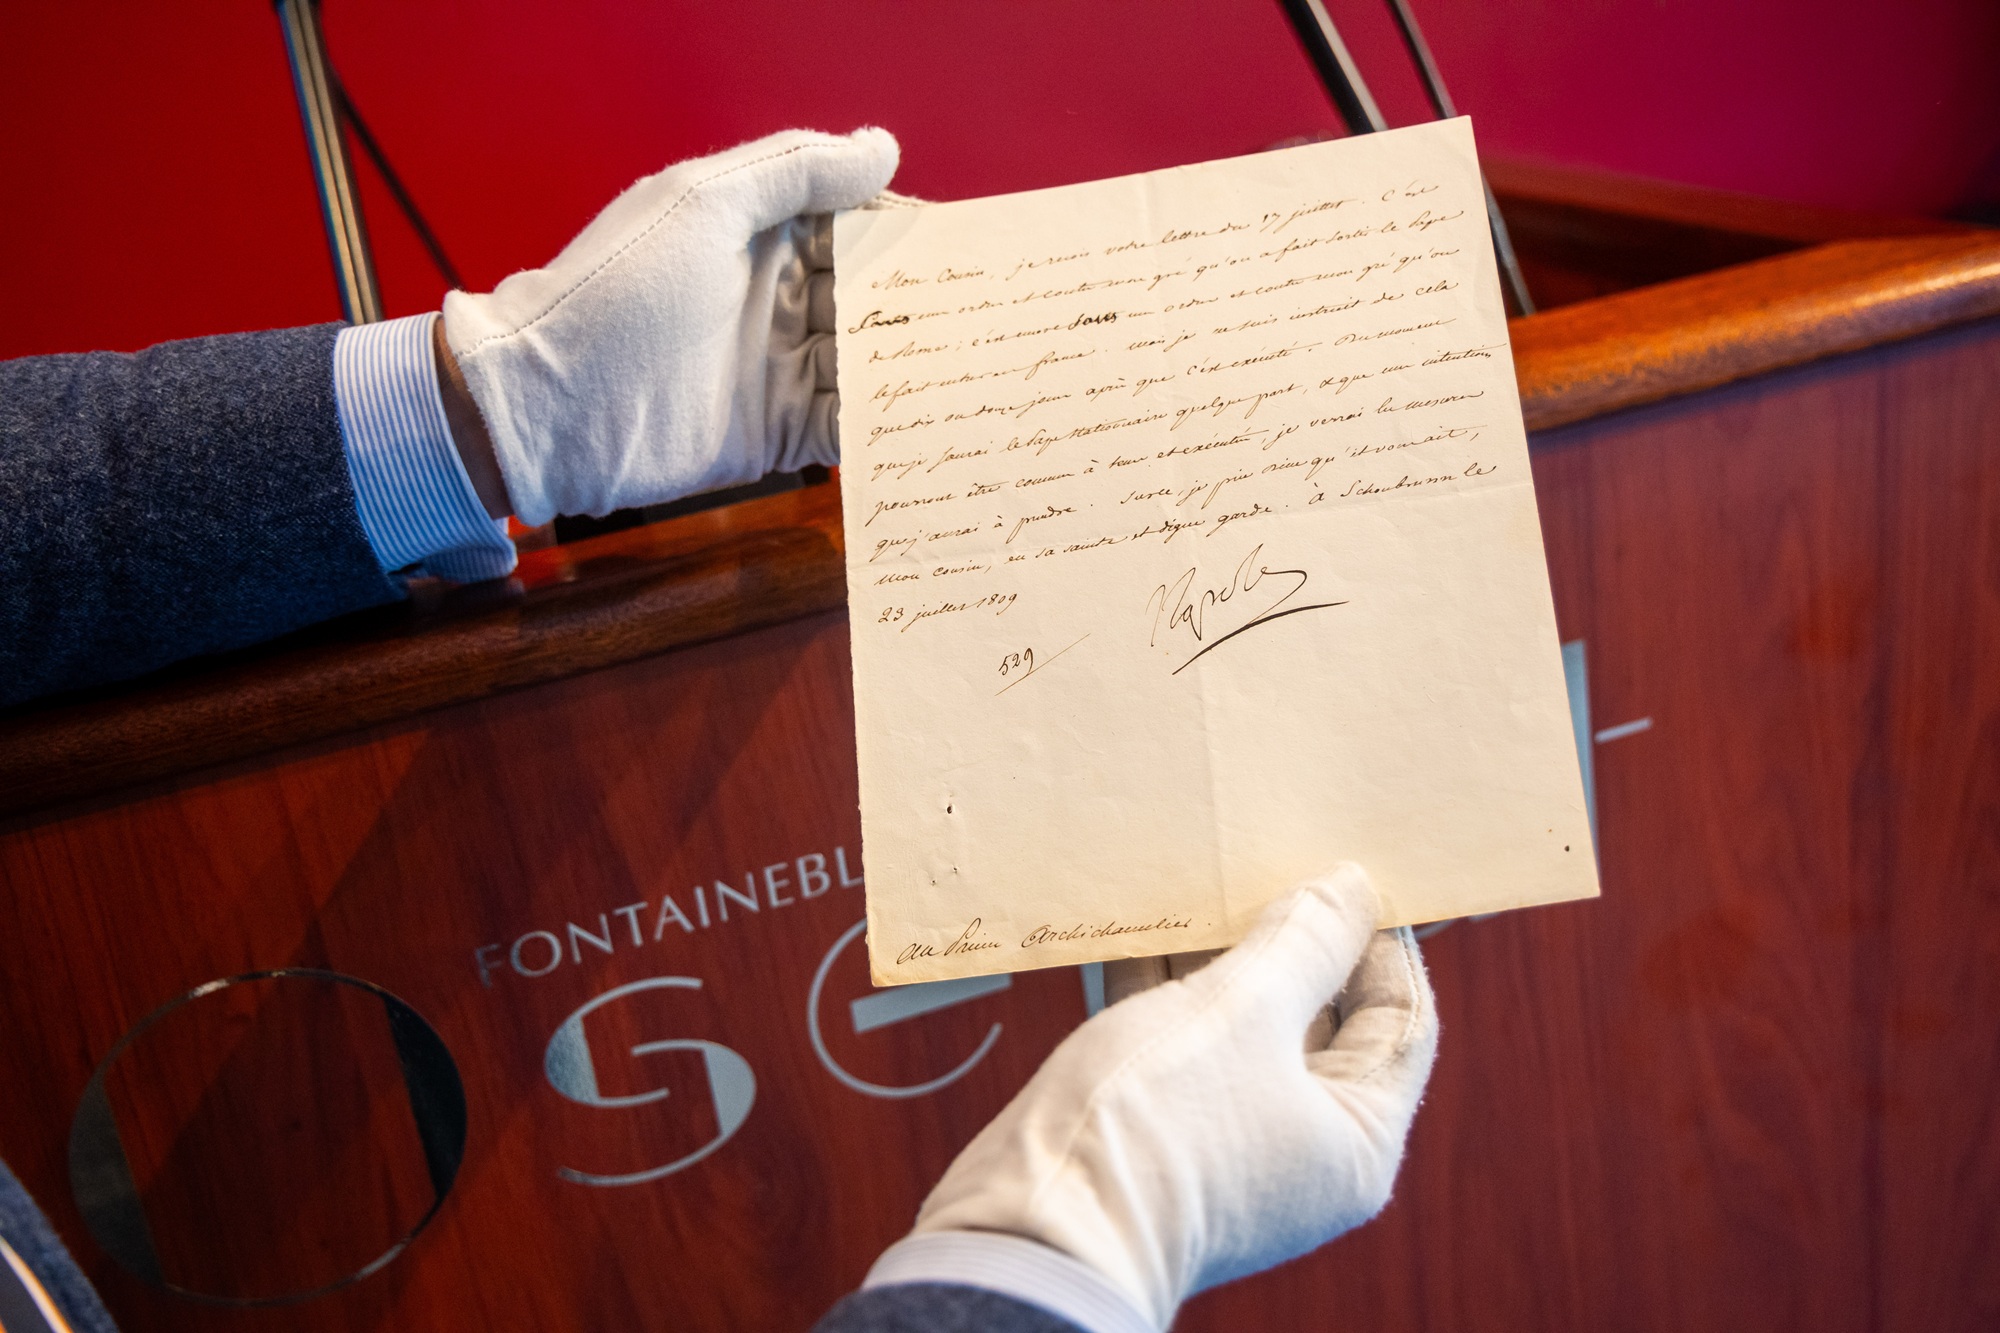 Mon Cousin, je reçois votre lettre du 17 juillet. C'est
sans mon ordre et contre mon gré qu'on a fait sortir le Pape
de Rome; c'est encore sans mon ordre et contre mon gré qu'on
le fait entrer en france. Mais je ne suis instruit de cela
que dix ou douze jours après que c'est exécuté. Du moment
que je saurai le Pape stationnaire quelque part, & que mes intentions
pourront être connues à temps et exécutées, je verrai les mesures
que j'aurai à prendre. Surce, je prie Dieu qu'il vous ait,
Mon cousin, en sa sainte et digne garde. à Schonbrunn le
23 juillet 1809
Napole
529
au Prince Archichancelier.
FONTAINEBL
ose